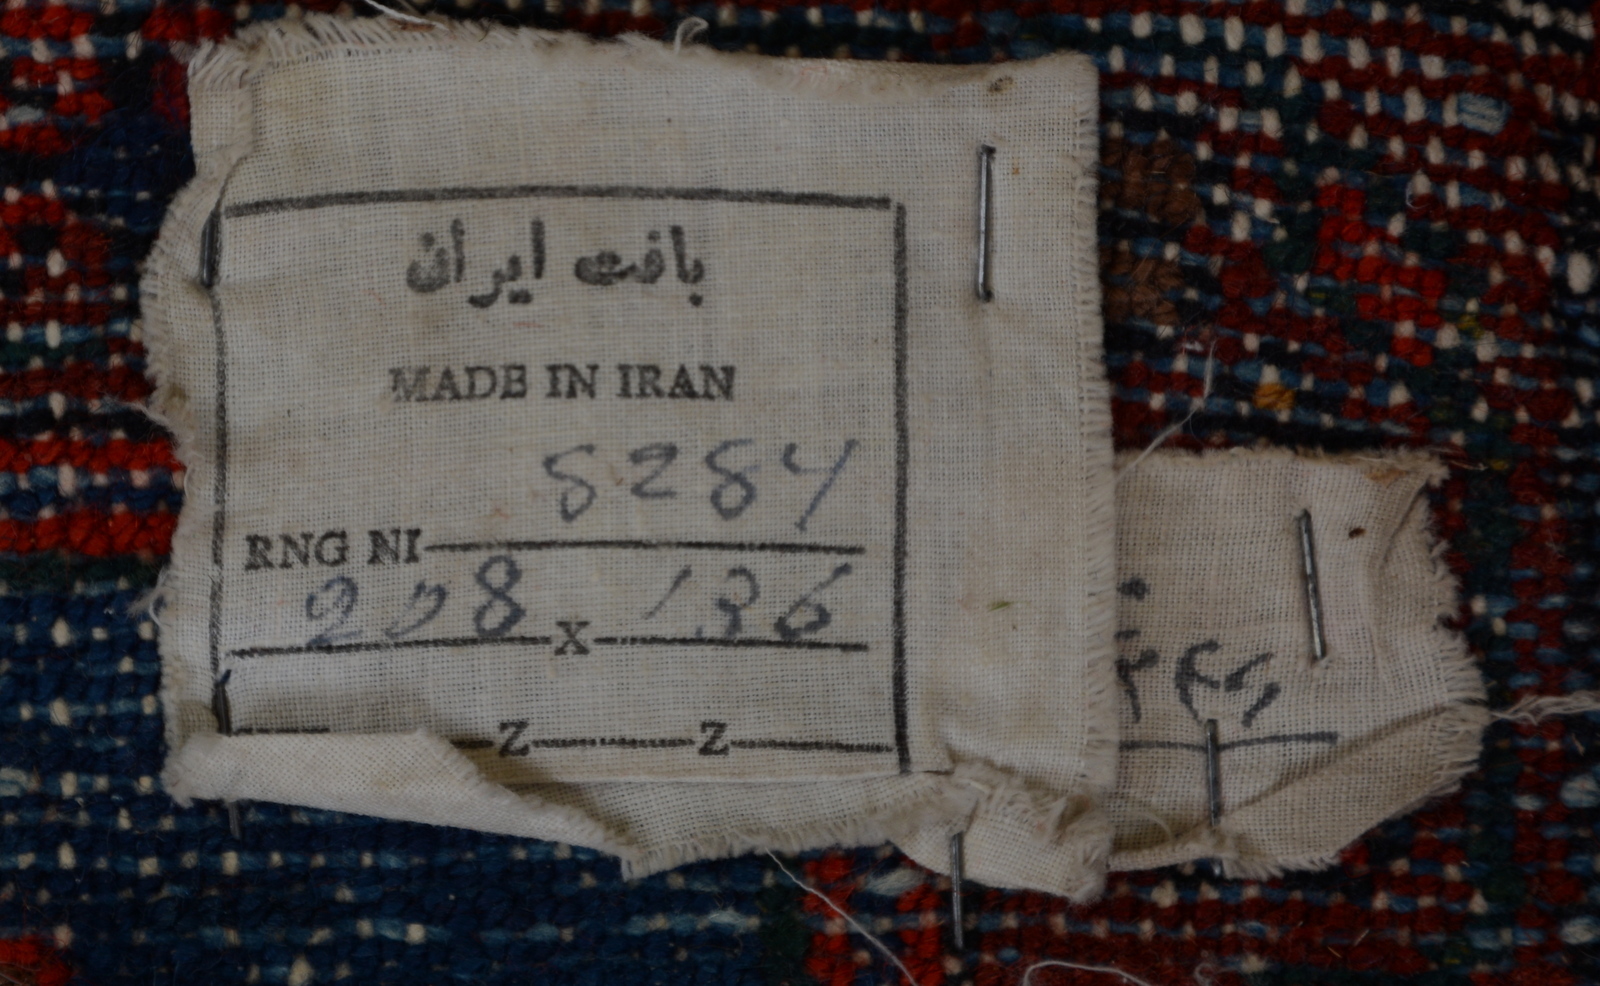 بافت ایران
MADE IN IRAN
8284
RNG NI
208 X 136
Z Z